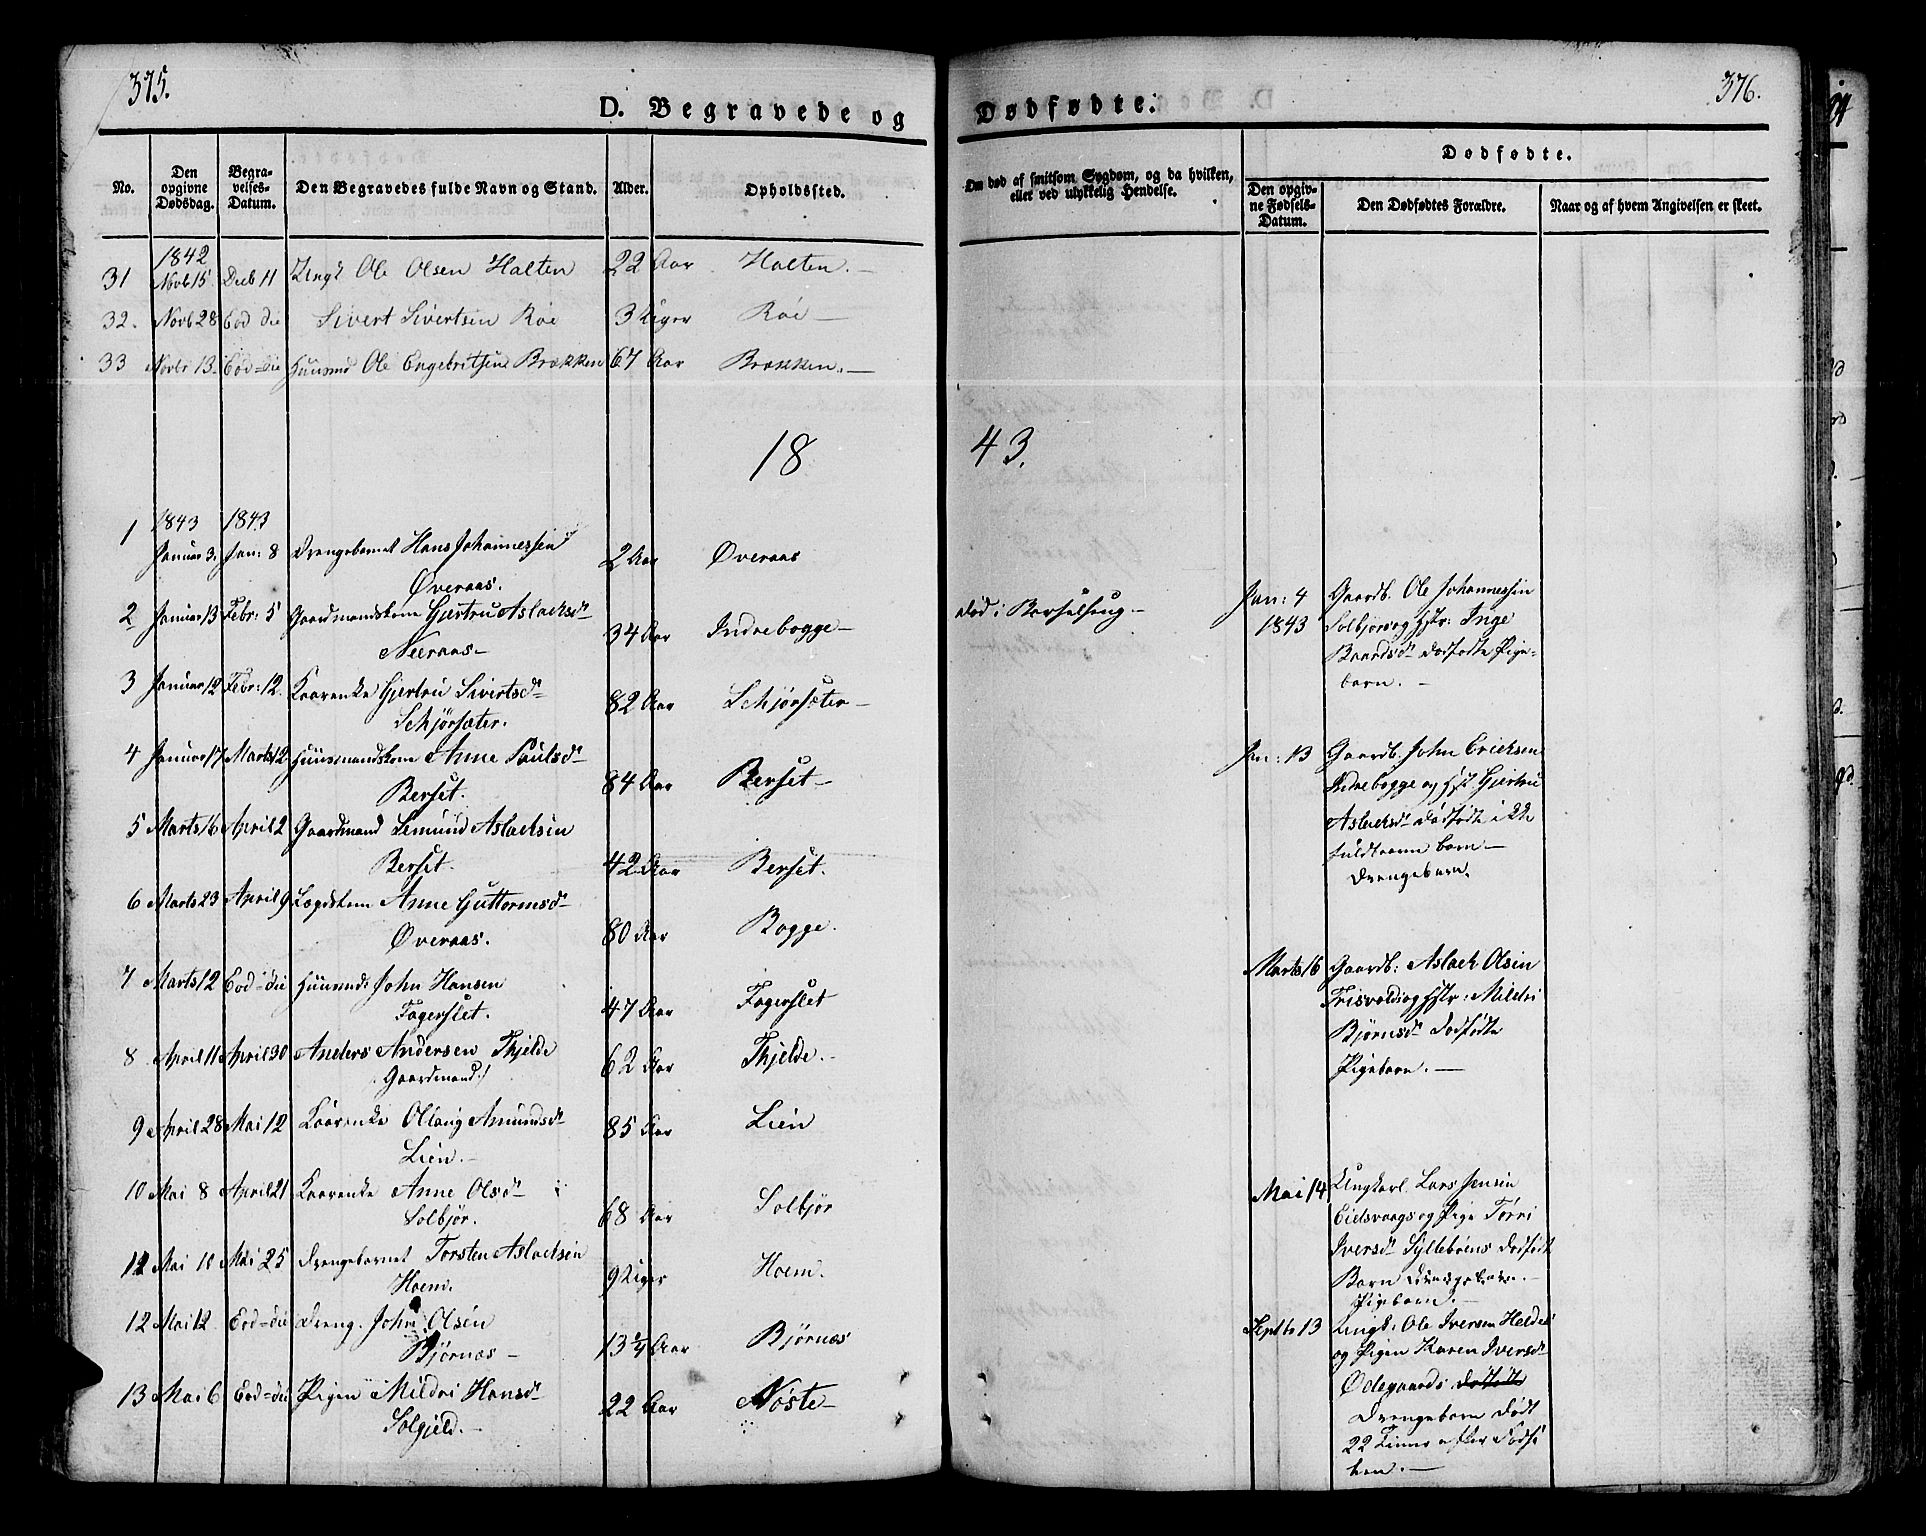 375.
D. Begravede og
No.
Den opgivne Dødsdag.
Begravelses-Datum.
Den Begravedes fulde Navn og Stand.
Alder.
Opholdssted.
1842
31 Novb 15. Decb 11 Ungk Ole Olsen Halten 22 Aar Halten.—
32. Novb 28 Eod die Sivert Sivertsen Röe 3 Uger Röe—
33 Novbr 13. Eod=die Huusmd Ole Engebritsen Brækken 67 Aar Brækken.—
18
1843 1843
1 Januar 3. Jan: 8 Drengebarnet Hans Johannessen 2 Aar Øveraas
Øveraas.
2 Januar 13 Febr: 5 Gaardmandskone Gjertru Aslaksdr 34 Aar Indrebogge—
Neeraas—
3 Januar 12 Febr: 12. Kaarenke Gjertru Sivertsdr 82 Aar Schjørsæter—
Schjørsæter.
4 Januar 17 Marts 12 Huusmandskone Anne Paulsdr 84 Aar Berset—
Berset.
5 Marts 16 April 2 Gaardmand Semund Aslachsen 42 Aar Berset.
Berset.
6 Marts 23 April 9 Lægdskone Anne Guttormsdr 80 Aar Bogge.
Øveraas.
7 Marts 12 Eod=die Huusmd: John Hansen 47 Aar Fagerslet
Fagerslet.
8 April 11 April 30 Anders Andersen Thjelde 62 Aar Thjelde.—
(Gaardmand.)
9 April 28 Mai 12 Kaarenke Ollaug Amundsdr 85 Aar Lien
Lien.—
10 Mai 8 April 21 Kaarenke Anne Olsdr 68 Aar Solbjör
Solbjör.
11 Mai 10 Mai 25 Drengebarnet Torsten Aslachsen 9 Uger Hoem.
Hoem.
12 Mai 12 Eod=die Dreng. John Olsen 13 1/4 Aar Bjørnæs
Bjørnæs—
13 Mai 6 Eod=die Pigen Mildri Hansdr 22 Aar Nöste—
Solgjeld.—
376.
Dødfødte.
Om død af smitsom Sygdom, og da hvilken,
eller ved ulykkelig Hendelse.
Dødfødte.
Den opgivne Fødsels-Datum.
Den Dødfødtes Forældre.
Naar og af hvem Angivelsen er skeet.
43.
død i Barselseng—
Jan: 4 Gaardb. Ole Johannessen
1843 Solbjör og Hstr: Inge
Baardsdr dødfødte Pige-
barn.—
Jan: 13 Gaardb. John Ericksen
Indrebogge og Hst. Gjertru
Aslachsdr dødfødte ikke
fuldbaarne barn—
Drengebarn.
Marts 16 Gaardb: Aslach Olsen
Frisvold og Hstr: Mildri
Bjørnsdr dødfødte
Pigebarn.—
Mai 14 Ungkarl Lars Jensen
Eidsvaag og Pige Torri
Iversdr Syltebøens dødfødt
Barn Drengebarn.—
Pigebarn.—
Septb 13 Ungk: Ole Iversen Heldes
og Pigen Karen Iversdr
Ødegaards dødfødt
Drengebarn dødt
22 Timer efter Fødse
len.—